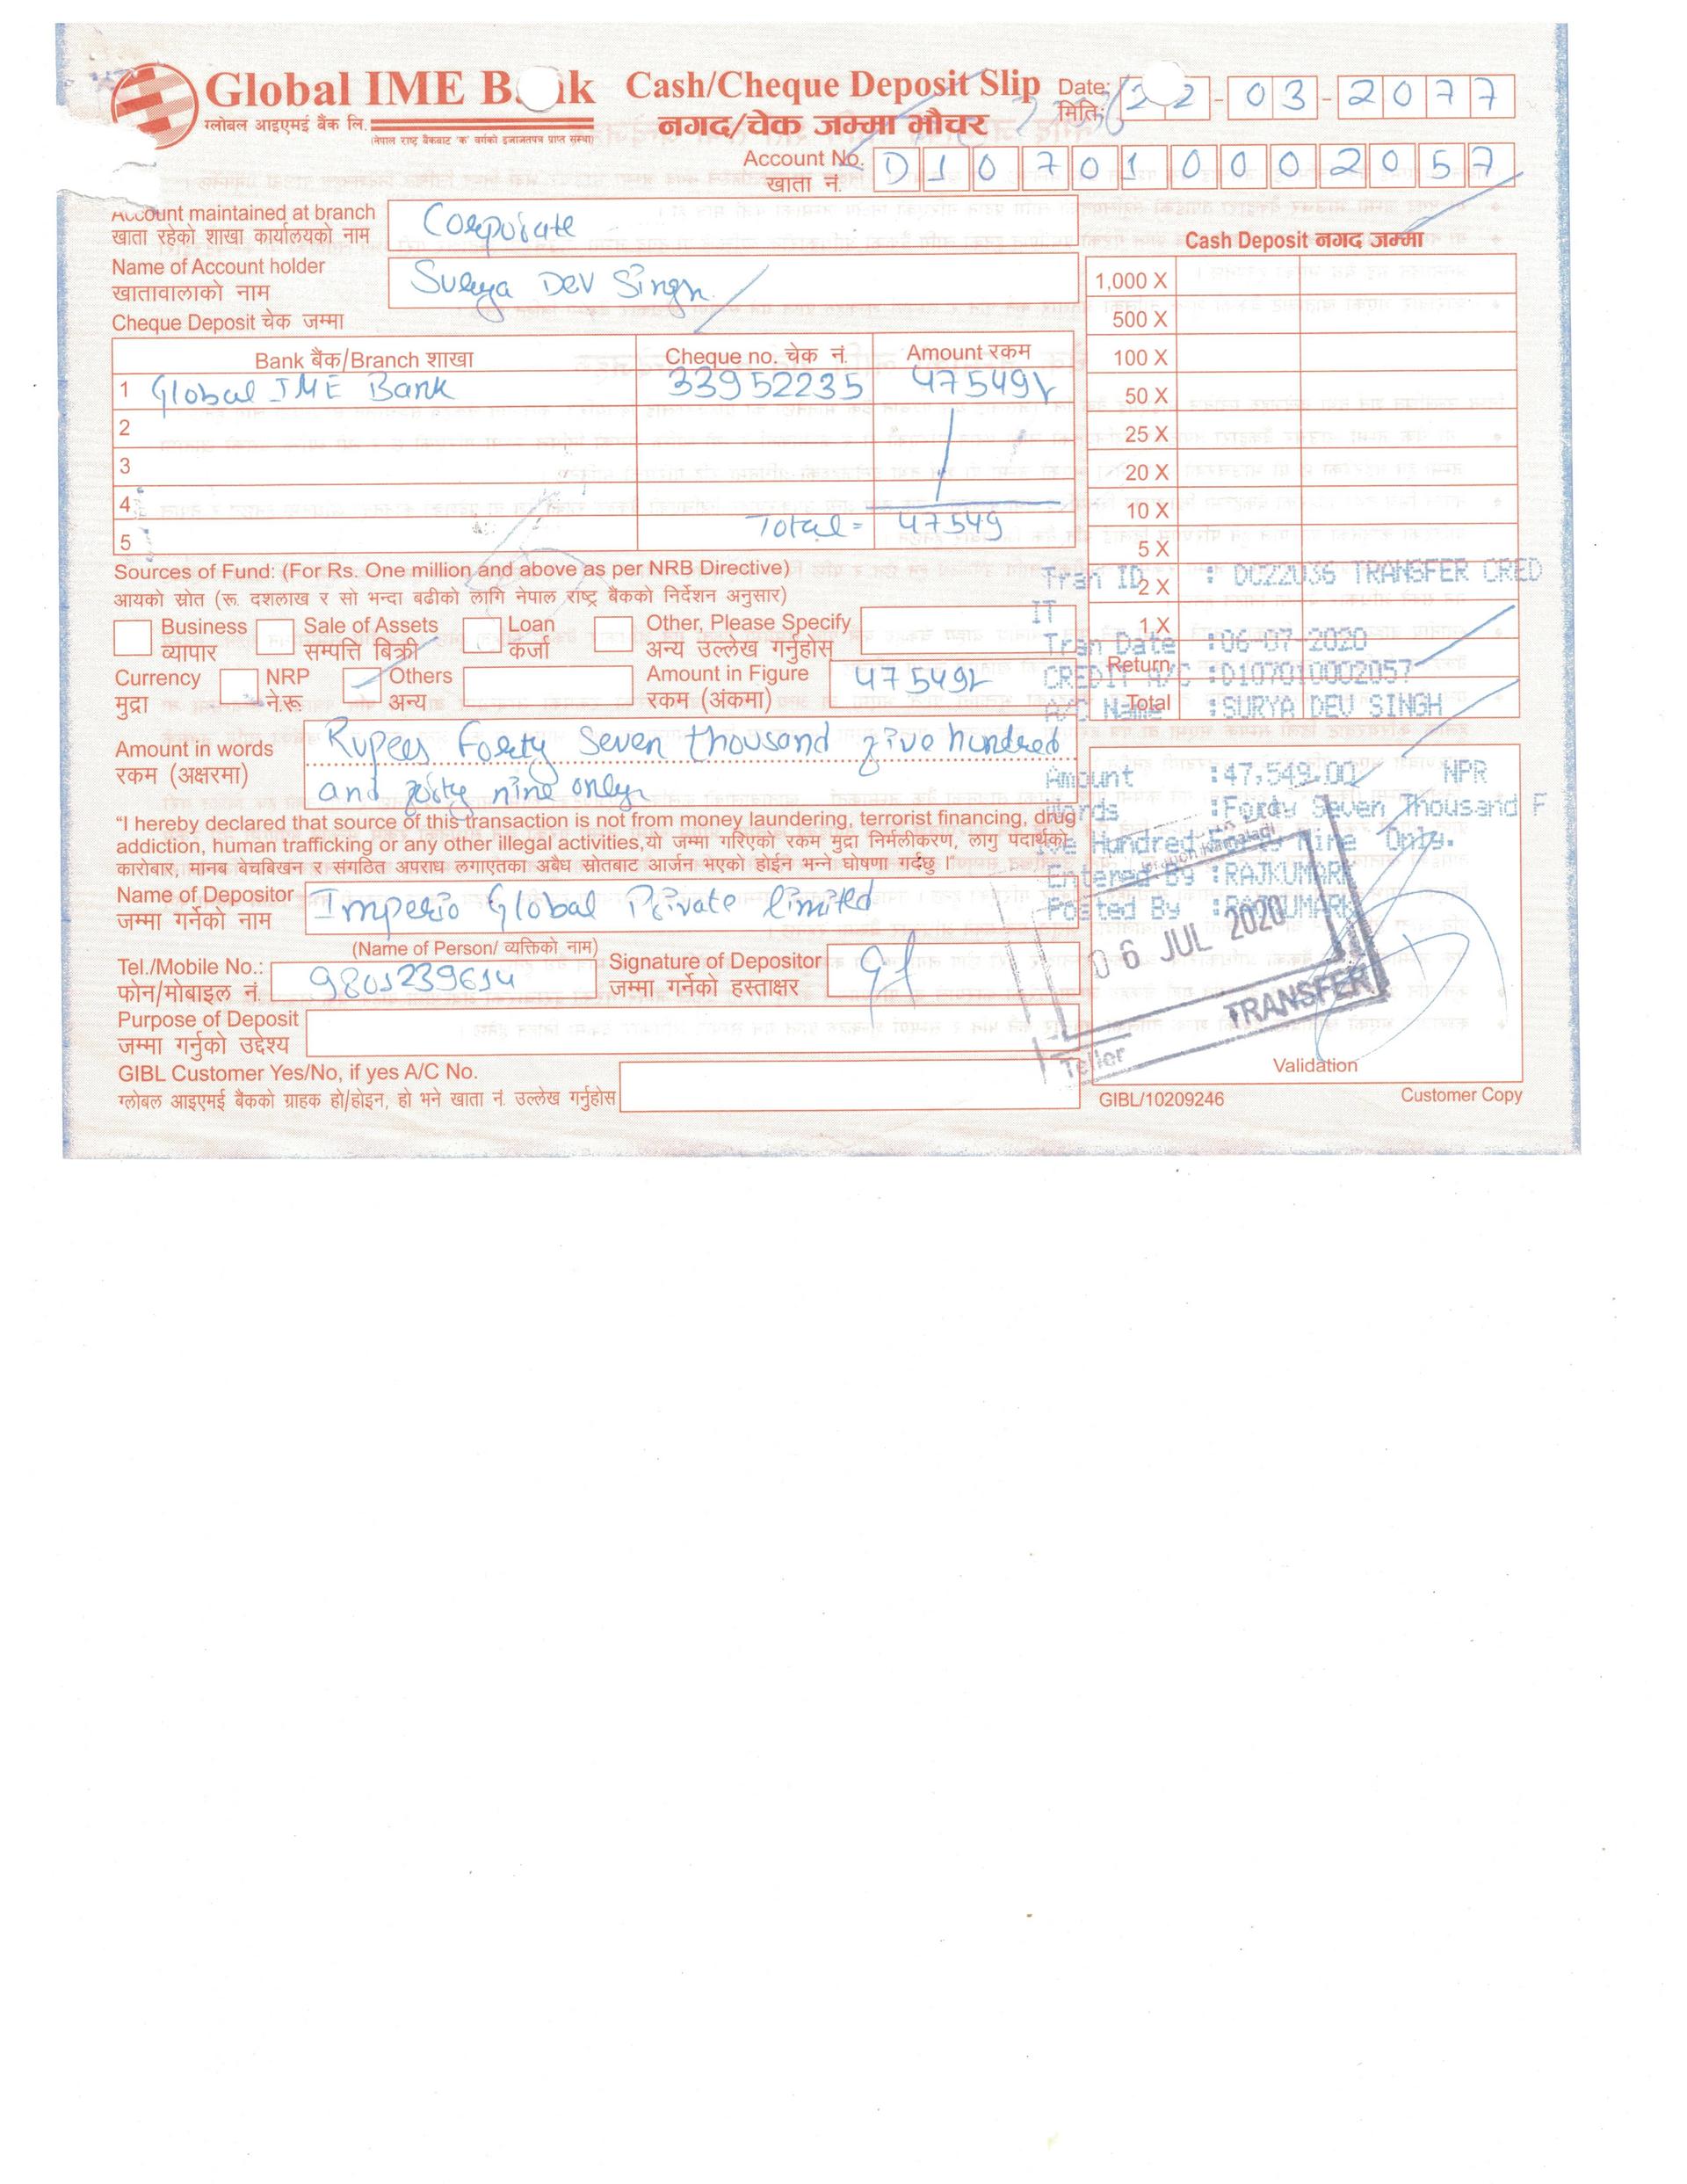 Global IME B k
ग्लोबल आइएमई बैंक लि.
(नेपाल राष्ट्र बैंकबाट 'क' वर्गको इजाजतपत्र प्राप्त संस्था)
Cash/Cheque Deposit Slip
नगद/चेक जम्मा भौचर
Date: 22-03-2077
मिति:
Account No. D107010002057
खाता नं.
Account maintained at branch Corporate
खाता रहेको शाखा कार्यालयको नाम
Name of Account holder Surya Dev Singh
खातावालाको नाम
Cheque Deposit चेक जम्मा
Bank बैंक/Branch शाखा Cheque no. चेक नं. Amount रकम
1 Global IME Bank 33952235 47549/-
2
3
4
5 Total = 47549
Cash Deposit नगद जम्मा
1,000 X
500 X
100 X
50 X
25 X
20 X
10 X
5 X
2 X
1 X
Return
Total
Sources of Fund: (For Rs. One million and above as per NRB Directive)
आयको स्रोत (रू. दशलाख र सो भन्दा बढीको लागि नेपाल राष्ट्र बैंकको निर्देशन अनुसार)
Business Sale of Assets Loan Other, Please Specify
व्यापार सम्पत्ति बिक्री कर्जा अन्य उल्लेख गर्नुहोस
Currency NRP Others Amount in Figure 47549/-
मुद्रा ने.रू अन्य रकम (अंकमा)
Amount in words Rupees Forty Seven thousand five hundred
रकम (अक्षरमा) and forty nine only
"I hereby declared that source of this transaction is not from money laundering, terrorist financing, drug
addiction, human trafficking or any other illegal activities,यो जम्मा गरिएको रकम मुद्रा निर्मलीकरण, लागु पदार्थको
कारोबार, मानब बेचबिखन र संगठित अपराध लगाएतका अबैध स्रोतबाट आर्जन भएको होईन भन्ने घोषणा गर्दछु ।"
Name of Depositor Imperio Global Private limited
जम्मा गर्नेको नाम
(Name of Person/ व्यक्तिको नाम)
Tel./Mobile No.: 9801239614
फोन/मोबाइल नं.
Signature of Depositor
जम्मा गर्नेको हस्ताक्षर
Purpose of Deposit
जम्मा गर्नुको उद्देश्य
GIBL Customer Yes/No, if yes A/C No.
ग्लोबल आइएमई बैंकको ग्राहक हो/होइन, हो भने खाता नं. उल्लेख गर्नुहोस
Tran ID : DC22036 TRANSFER CRED
IT
Tran Date :06-07-2020
CREDIT A/C :D107010002057
A/C Name :SURYA DEV SINGH
Amount :47,549.00 NPR
Words :Forty Seven Thousand F
ive Hundred Forty Nine Only.
Entered By :RAJKUMARK
Posted By :RAJKUMARK
06 JUL 2020
TRANSFER
Teller
Validation
GIBL/10209246 Customer Copy